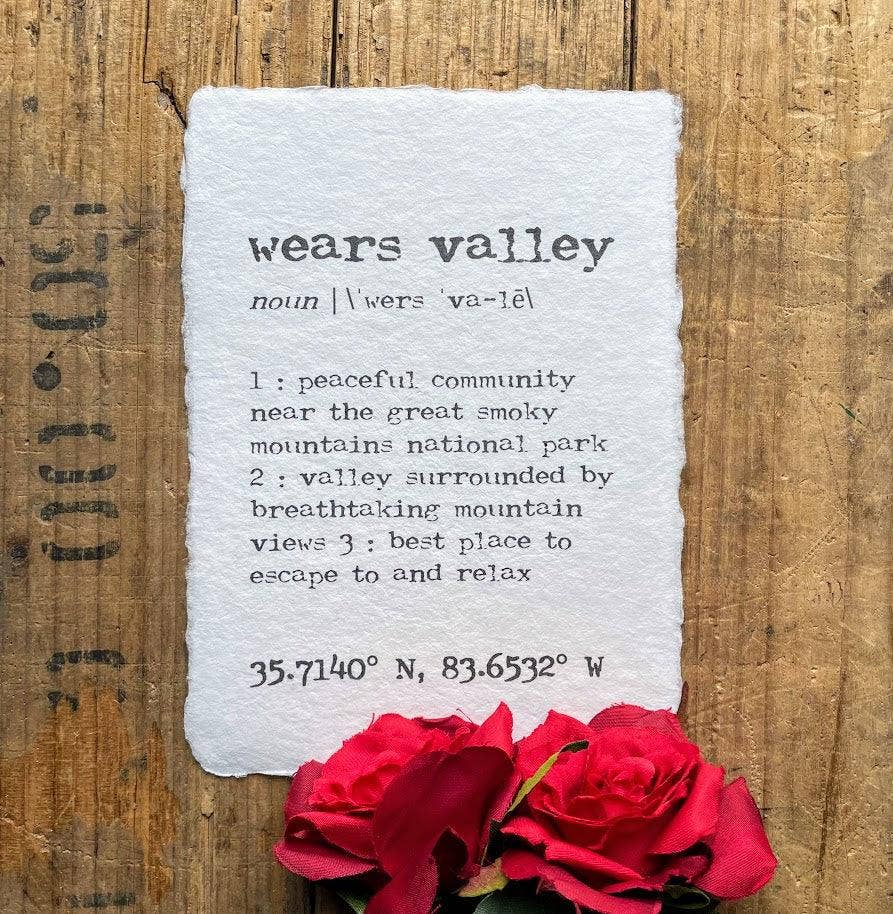 wears valley
noun |\ˈwers ˈva-lē\
1 : peaceful community
near the great smoky
mountains national park
2 : valley surrounded by
breathtaking mountain
views 3 : best place to
escape to and relax
35.7140° N, 83.6532° W